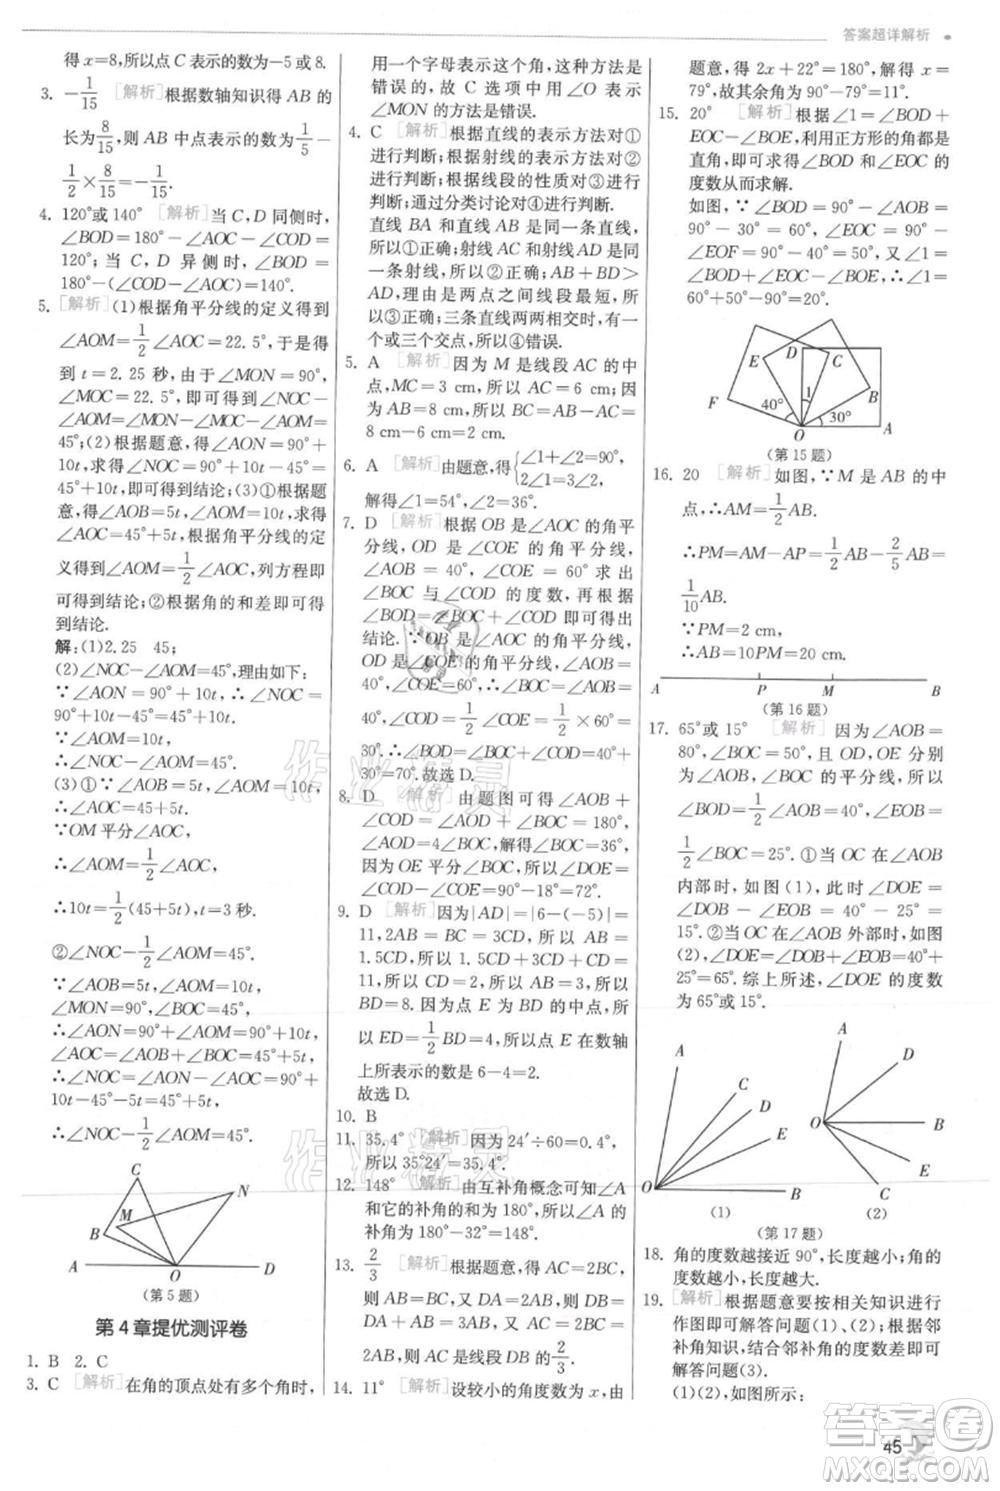 答案超详解析
得 x=8,所以点C表示的数为-5或8.
3. -1/15 [解析]根据数轴知识得 AB 的
长为8/15,则 AB 中点表示的数为1/5+
1/2×8/15=7/15.
4. 120°或 140° [解析]当 C,D 同侧时,
∠BOD=180°-∠AOC-∠COD=
120°;当 C,D 异侧时,∠BOD=
180°-(∠COD-∠AOC)=140°.
5. [解析](1)根据角平分线的定义得到
∠AOM=1/2∠AOC=22.5°,于是得
到 t=2.25 秒,由于∠MON=90°,
∠MOC=22.5°,即可得到∠NOC=
∠AOM=∠MON-∠MOC=
45°;(2)根据题意,得∠AON=90°+
10t,即可得到结论;(3)①根据题
意,得∠AOB=5t,∠AOM=10t,求得
∠AOC=45°+5t,根据角平分线的定
义得到∠AOM=1/2∠AOC,列方程即
可得到结论;②根据角的和差即可得
到结论.
解:(1)2.25 45;
(2)∠NOC-∠AOM=45°,理由如下:
∵∠AON=90°+10t,∴∠NOC=
90°+10t-45°=45°+10t.
∵∠AOM=10t,
∴∠NOC-∠AOM=45°.
(3)①∵∠AOB=5t,∠AOM=10t,
∴∠AOC=45+5t.
∵OM平分∠AOC,
∴∠AOM=1/2∠AOC,
∴10t=1/2(45+5t),∴t=3秒.
②∠NOC-1/2∠AOM=45°.
∵∠AOB=5t,∠AOM=10t,
∠MON=90°,∠BOC=45°,
∴∠AON=90°+∠AOM=90°+10t,
∠AOC=∠AOB+∠BOC=45°+5t,
∴∠NOC=∠AON-∠AOC=90°+
10t-45°-5t=45°+5t,
∴∠NOC-1/2∠AOM=45°.
C
N
B
M
A
O
D
(第5题)
第4章提优测评卷
1. B 2. C
3. C [解析]在角的顶点处有多个角时,
用一个字母表示这个角,这种方法是
错误的,故 C 选项中用∠O 表示
∠MON 的方法是错误.
4. C [解析]根据直线的表示方法对①
进行判断;根据射线的表示方法对②
进行判断;根据线段的性质对③进行
判断;通过分类讨论对④进行判断.
直线 BA 和直线 AB 是同一条直线,
所以①正确;射线 AC 和射线 AD 是
同一条射线,所以②正确;AB+BD>
AD,理由是两点之间线段最短,所以
③正确;三条直线两两相交时,有一个
或三个交点,所以④错误.
5. A [解析]因为 M 是线段 AC 的中
点,MC=3 cm,所以 AC=6 cm;因
为 AB=8 cm,所以 BC=AB-AC=
8 cm-6 cm=2 cm.
6. A [解析]由题意,得{∠1+∠2=90°, 2∠1=3∠2,
解得∠1=54°,∠2=36°.
7. D [解析]根据 OB 是∠AOC 的角平
分线,OD 是∠COE 的角平分线,
∠AOB = 40°,∠COE = 60°求出
∠BOC 与∠COD 的度数,然后根据
∠BOD=∠BOC+∠COD即可得出
结论.∵OD 是∠COE 的角平分线,
∠COE=60°,
∴∠COD=1/2∠COE=1/2×60°=
30°.∴∠BOD=∠BOC+∠COD=40°+
30°=70°.故选 D.
8. D [解析]由题图可得∠AOB+
∠AOD=∠AOB+∠BOC=180°,
∠AOD=4∠BOC,解得∠BOC=36°,
因为 OE 平分∠BOC,所以∠DOE=
∠BOD-∠BOE=90°-18°=72°.
9. D [解析]因为|AD|=|6-(-5)|=
11,2AB=BC=3CD,所以 AB=
1.5CD,所以1.5CD+3CD+CD=
11,所以 CD=2,所以 AB=3,所以
BD=8.因为点 E 为 BD 的中点,所
以 ED=1/2BD=4,所以点 E 在数轴
上所表示的数是 6-4=2.
故选 D.
10. B
11. 35.4° [解析]因为 24′÷60=0.4°,
所以35°24′=35.4°.
12. 148° [解析]由互补角概念可知∠A
和它的补角的和为 180°,所以∠A 的
补角为180°-32°=148°.
13. 2/3 [解析]根据题意,得 AC=2BC,
则 AB=AC-BC=2BC-BC=
BC,又 DA=2AB,则 DA=2AB=
2AB,则线段 DB=DA=2/3AC.
14. 11° [解析]设较小的角度数为 x,由
题意,得 2x+22°=180°,解得 x=
79°,故其余角为 90°-79°=11°.
15. 20° [解析]根据∠1=∠BOD+
∠EOC-∠BOE,利用正方形的角都是
直角,即可求得∠BOD 和∠EOC 的
度数从而求解.
如图,∵∠BOD=90°-∠AOB=
90°-30°=60°,∠EOC=90°-
∠EOF=90°-40°=50°,又∵∠1=
∠BOD+∠EOC-∠BOE,∴∠1=
60°+50°-90°=20°.
D
C
E
B
F
40°
1
30°
O
A
(第15题)
16. 20 [解析]如图,∵M 是 AB 的中
点,∴AM=1/2AB.
∴PM=AM-AP=1/2AB-2/5AB=
1/10AB.
∵PM=2 cm,
∴AB=10PM=20 cm.
A P M B
(第16题)
17. 65°或 15° [解析]因为∠AOB=
80°,∠BOC=50°,OD,OE 分别
为∠AOB,∠BOC的平分线,所以
∠BOD=1/2∠AOB=40°,∠EOB=
1/2∠BOC=25°.①当 OC 在∠AOB
内部时,如图(1),此时∠DOE=
∠BOD-∠EOB=40°-25°=
15°.②当 OC 在∠AOB 外部时,如图
(2),∠DOE=∠DOB+∠EOB=40°+
25°=65°.综上所述,∠DOE的度数
为65°或15°.
A
C
D
E
O
B
(1)
A
D
O
B
E
C
(2)
(第17题)
18. 角的度数越接近 90°,长度越小;角的
度数越小,长度越大.
19. [解析]根据题意要按相关知识进行
作图即可解答问题(1)、(2);根据邻
补角知识,结合邻补角角度即可
解答问题(3).
(1)(2)如图所示:
45
答案圈
MXQE.COM
作业精灵
作业精灵